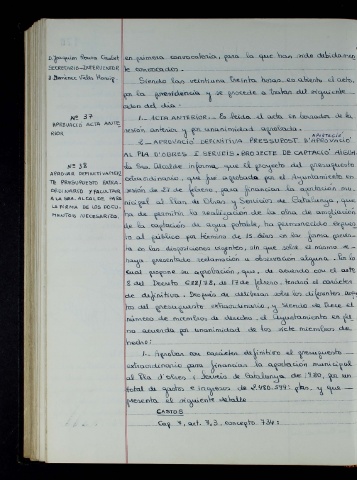 D. Joaquim
SECRETARIO-INTERVENTOR
Nº 37
APROVACIÓ ACTA ANTE
RIOR
Nº 38
APROVAR DEFINITIVAMEN
TE PRESUPUESTO EXTRA-
ORDINARIO Y FACULTAR
A LA SRA. ALCALDE PARA
LA FIRMA DE LOS DOCU-
MENTOS NECESARIOS.
en primera convocatoria, para la que han sido debidamen
te convocados.
Siendo las veintiuna treinta horas, es abierto el acto,
por la presidencia y se procede a tratar del siguiente
orden del día:
1.- ACTA ANTERIOR.- Es leída el acta en borrador de la
sesión anterior y por unanimidad aprobada.
2.- APROVACIÓ DEFINITIVA PRESSUPOST D'APROVACIÓ
APORTACIÓ
AL PLA D'OBRES I SERVEIS - PROJECTE DE CAPTACIÓ AIGUA
la Sra. Alcalde informa, que el proyecto del presupuesto
extraordinario, que fue aprobado por el Ayuntamiento en
sesión de 27 de febrero, para financiar la aportación mu
nicipal al Plan de Obras y Servicios de Catalunya, que
ha de permitir la realización de la obra de ampliación
de la captación de agua potable, ha permanecido expues
to al público por término de 15 días en la forma previs
ta en las disposiciones vigentes, sin que sobre el mismo se
haya presentado reclamación u observación alguna. Por lo
cual propone su aprobación, que, de acuerdo con el art.
8 del Decreto 622/ 82, de 17 de febrero, tendrá el carácter
de definitiva. Después de deliberar sobre los diferentes
del presupuesto extraordinario, y siendo de trece el
número de miembros de derecho, el Ayuntamiento en ple
no acuerda por unanimidad de los siete miembros de
hecho:
1.- Aprobar con carácter definitivo el presupuesto
extraordinario para financiar la aportación municipal
al Pla d'Obres i Serveis de Catalunya de 1980, por un
total de gastos e ingresos de 2.980.599: ptas. y que
presenta el siguiente detalle
GASTOS
Cap. 7, art. 7,3, concepto 734: